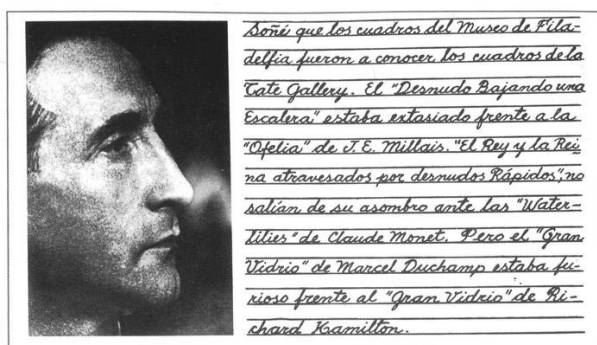 Soñé que los cuadros del Museo de Fila-
delfia fueron a conocer los cuadros de la
Tate Gallery. El "Desnudo Bajando una
Escalera" estaba extasiado frente a la
"Ofelia" de J. E. Millais. "El Rey y la Rei
na atravesados por desnudos Rápidos", no
salían de su asombro ante las "Water-
lilies" de Claude Monet. Pero el "Gran
Vidrio" de Marcel Duchamp estaba fu-
rioso frente al "Gran Vidrio" de Ri-
chard Hamilton.